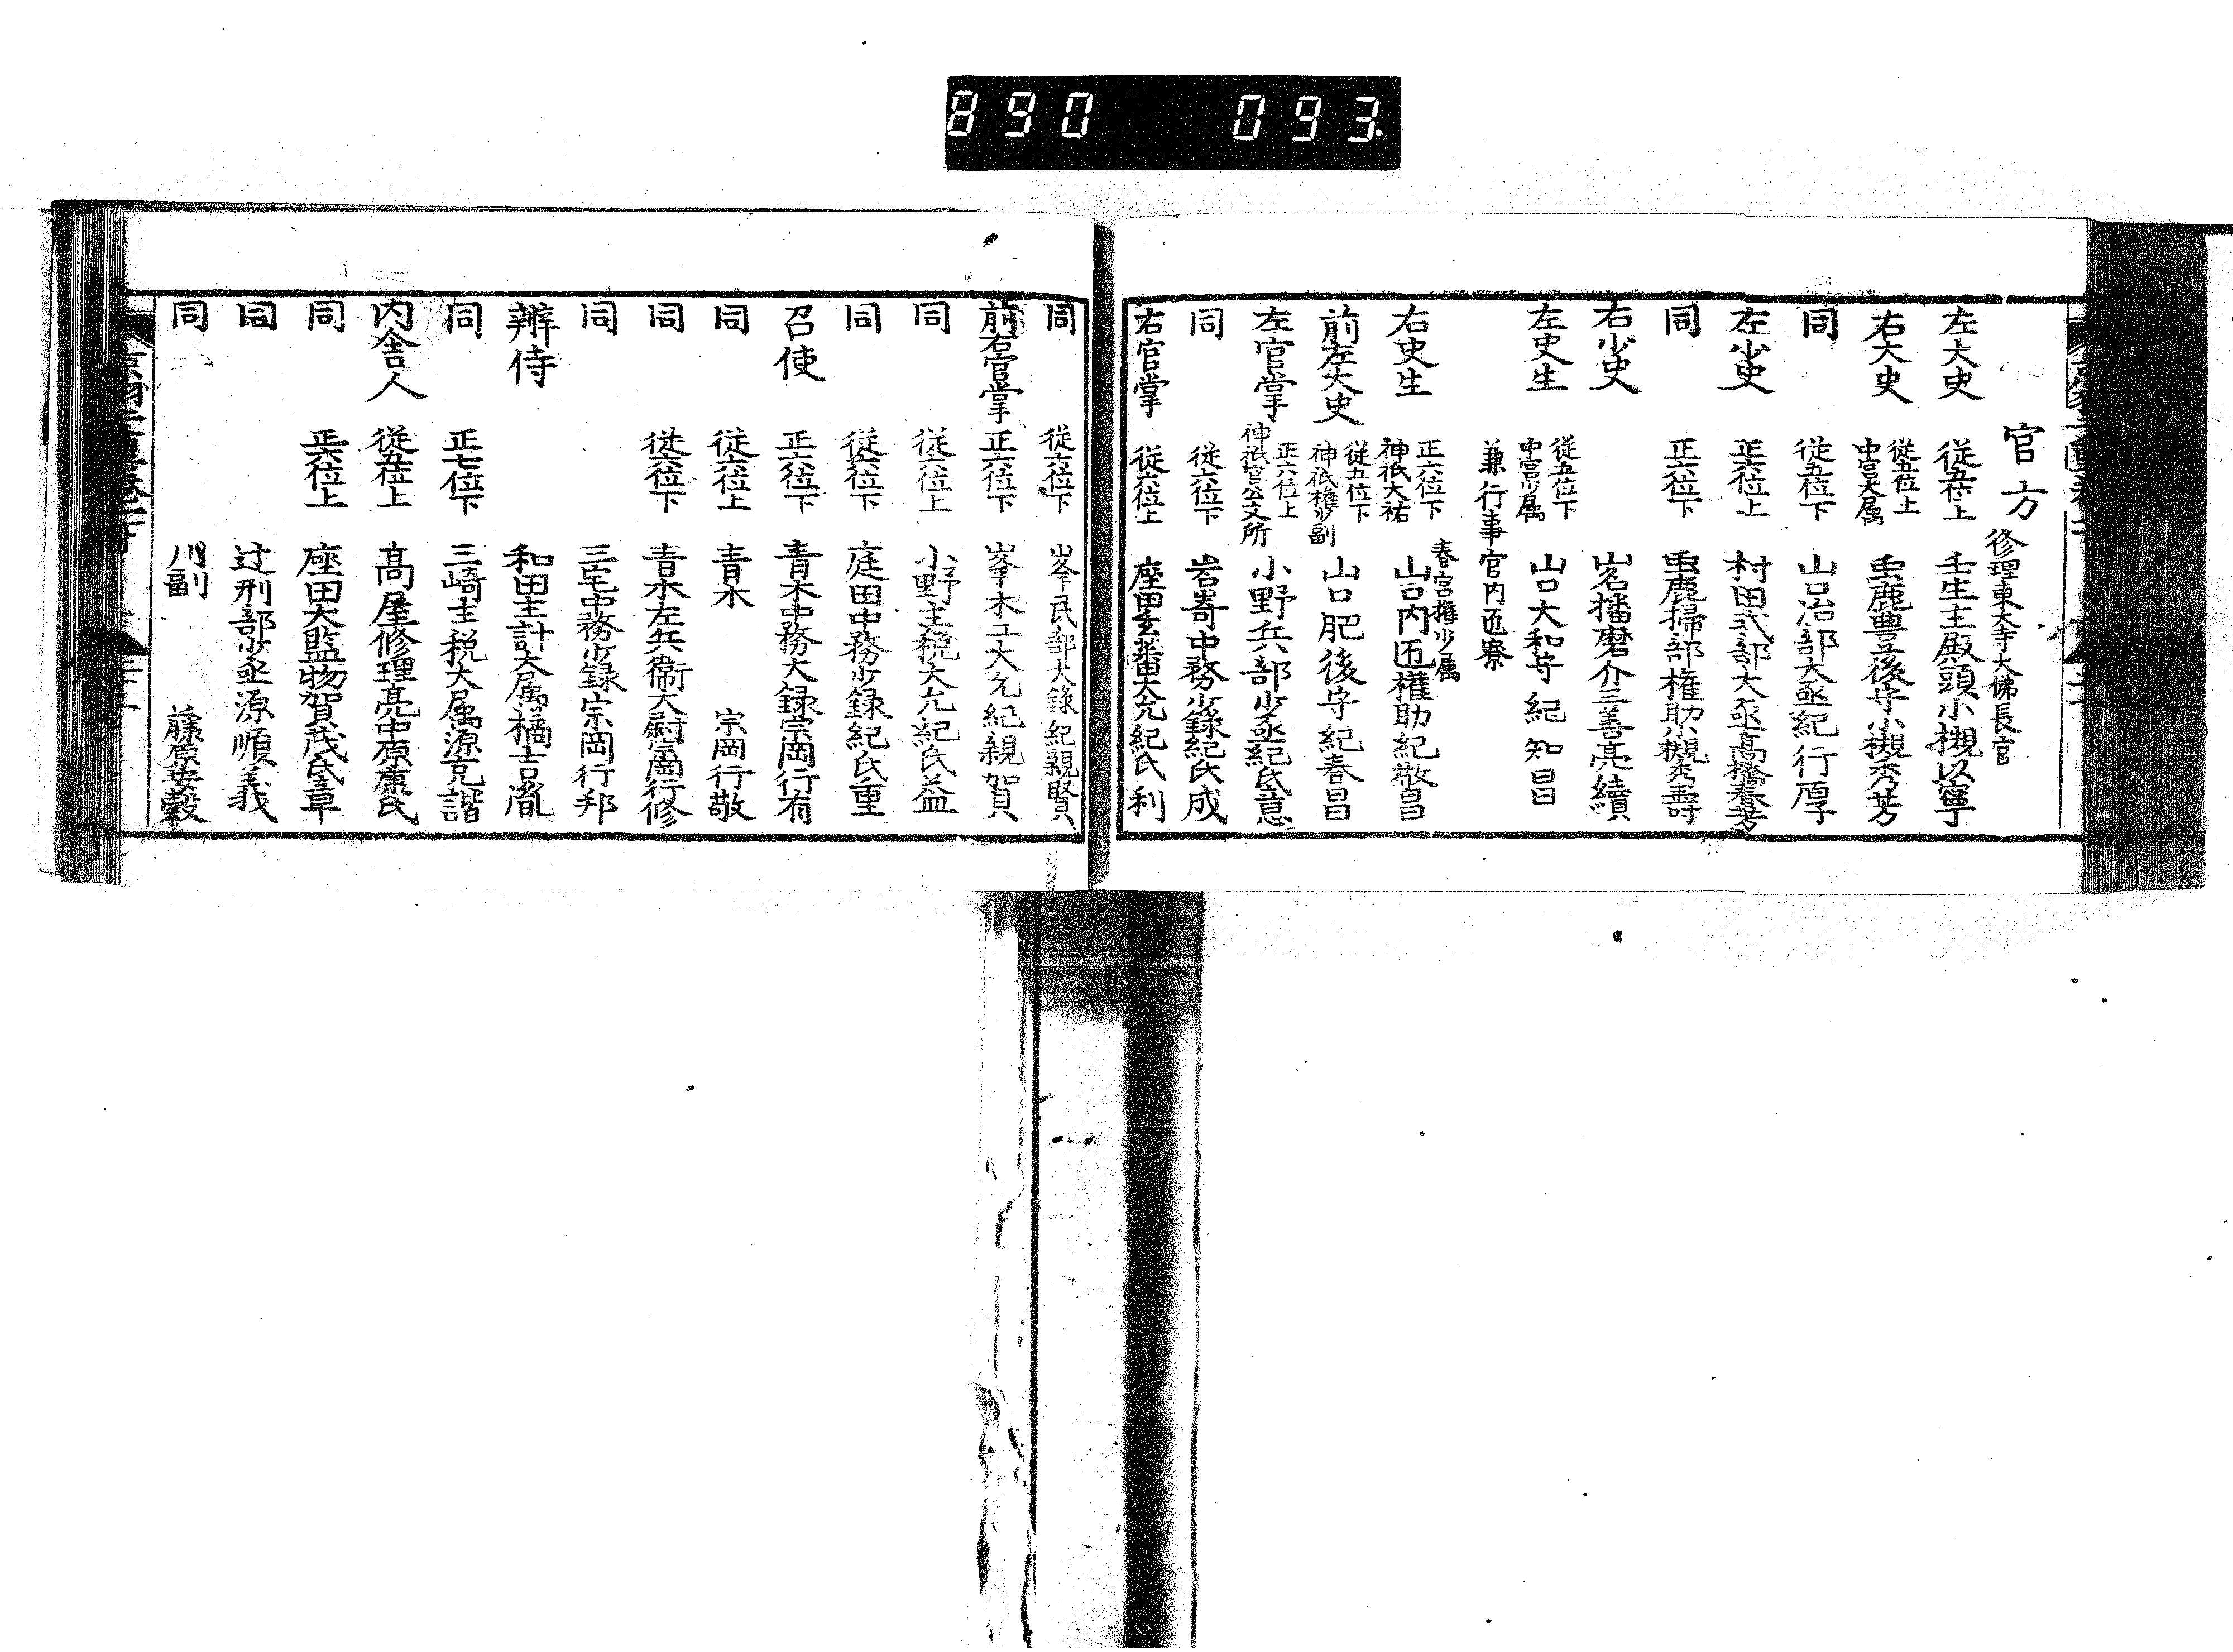 890 093
官方
修理東大寺大佛長官
左大史 從五位上 壬生主殿頭小槻以寧
右大史 從五位上 中宮大属 虫鹿豊後守小槻秀芳
同 從五位下 山口冶部大丞紀行厚
左少史 正六位上 村田式部大丞高橋春芳
同 正六位下 虫鹿掃部権助小槻秀壽
右少史 岩播磨介三善亮績
左史生 從五位下 中宮少属 山口大和守紀知昌
兼行事官内匠寮
春宮権少属
右史生 正六位下 神祇大祐 山口内匠權助紀敬昌
前左大史 從五位下 神祇権少副 山口肥後守紀春昌
左官掌 正六位上 神祇官公文所 小野兵部少丞紀氏意
同 從六位下 岩嵜中務少錄紀氏成
右官掌 從六位上 座田玄蕃大允紀氏利
同 從六位下 峯民部大錄紀親賢
前右官掌 正六位下 峯木工大允紀親賀
同 從六位上 小野主税大允紀氏益
同 從六位下 庭田中務少録紀氏重
召使 正六位下 青木中務大録宗岡行有
同 從六位上 青木 宗岡行敬
同 從六位下 青木左兵衞大尉宗岡行修
同 三宅中務少録宗岡行邦
辨侍 和田主計大属橘吉胤
同 正七位下 三崎主税大属源克諧
内舎人 從五位上 髙屋修理亮中原康氏
同 正六位上 座田大監物賀茂氏章
同 辻刑部少丞源順義
同 川副 藤原安穀